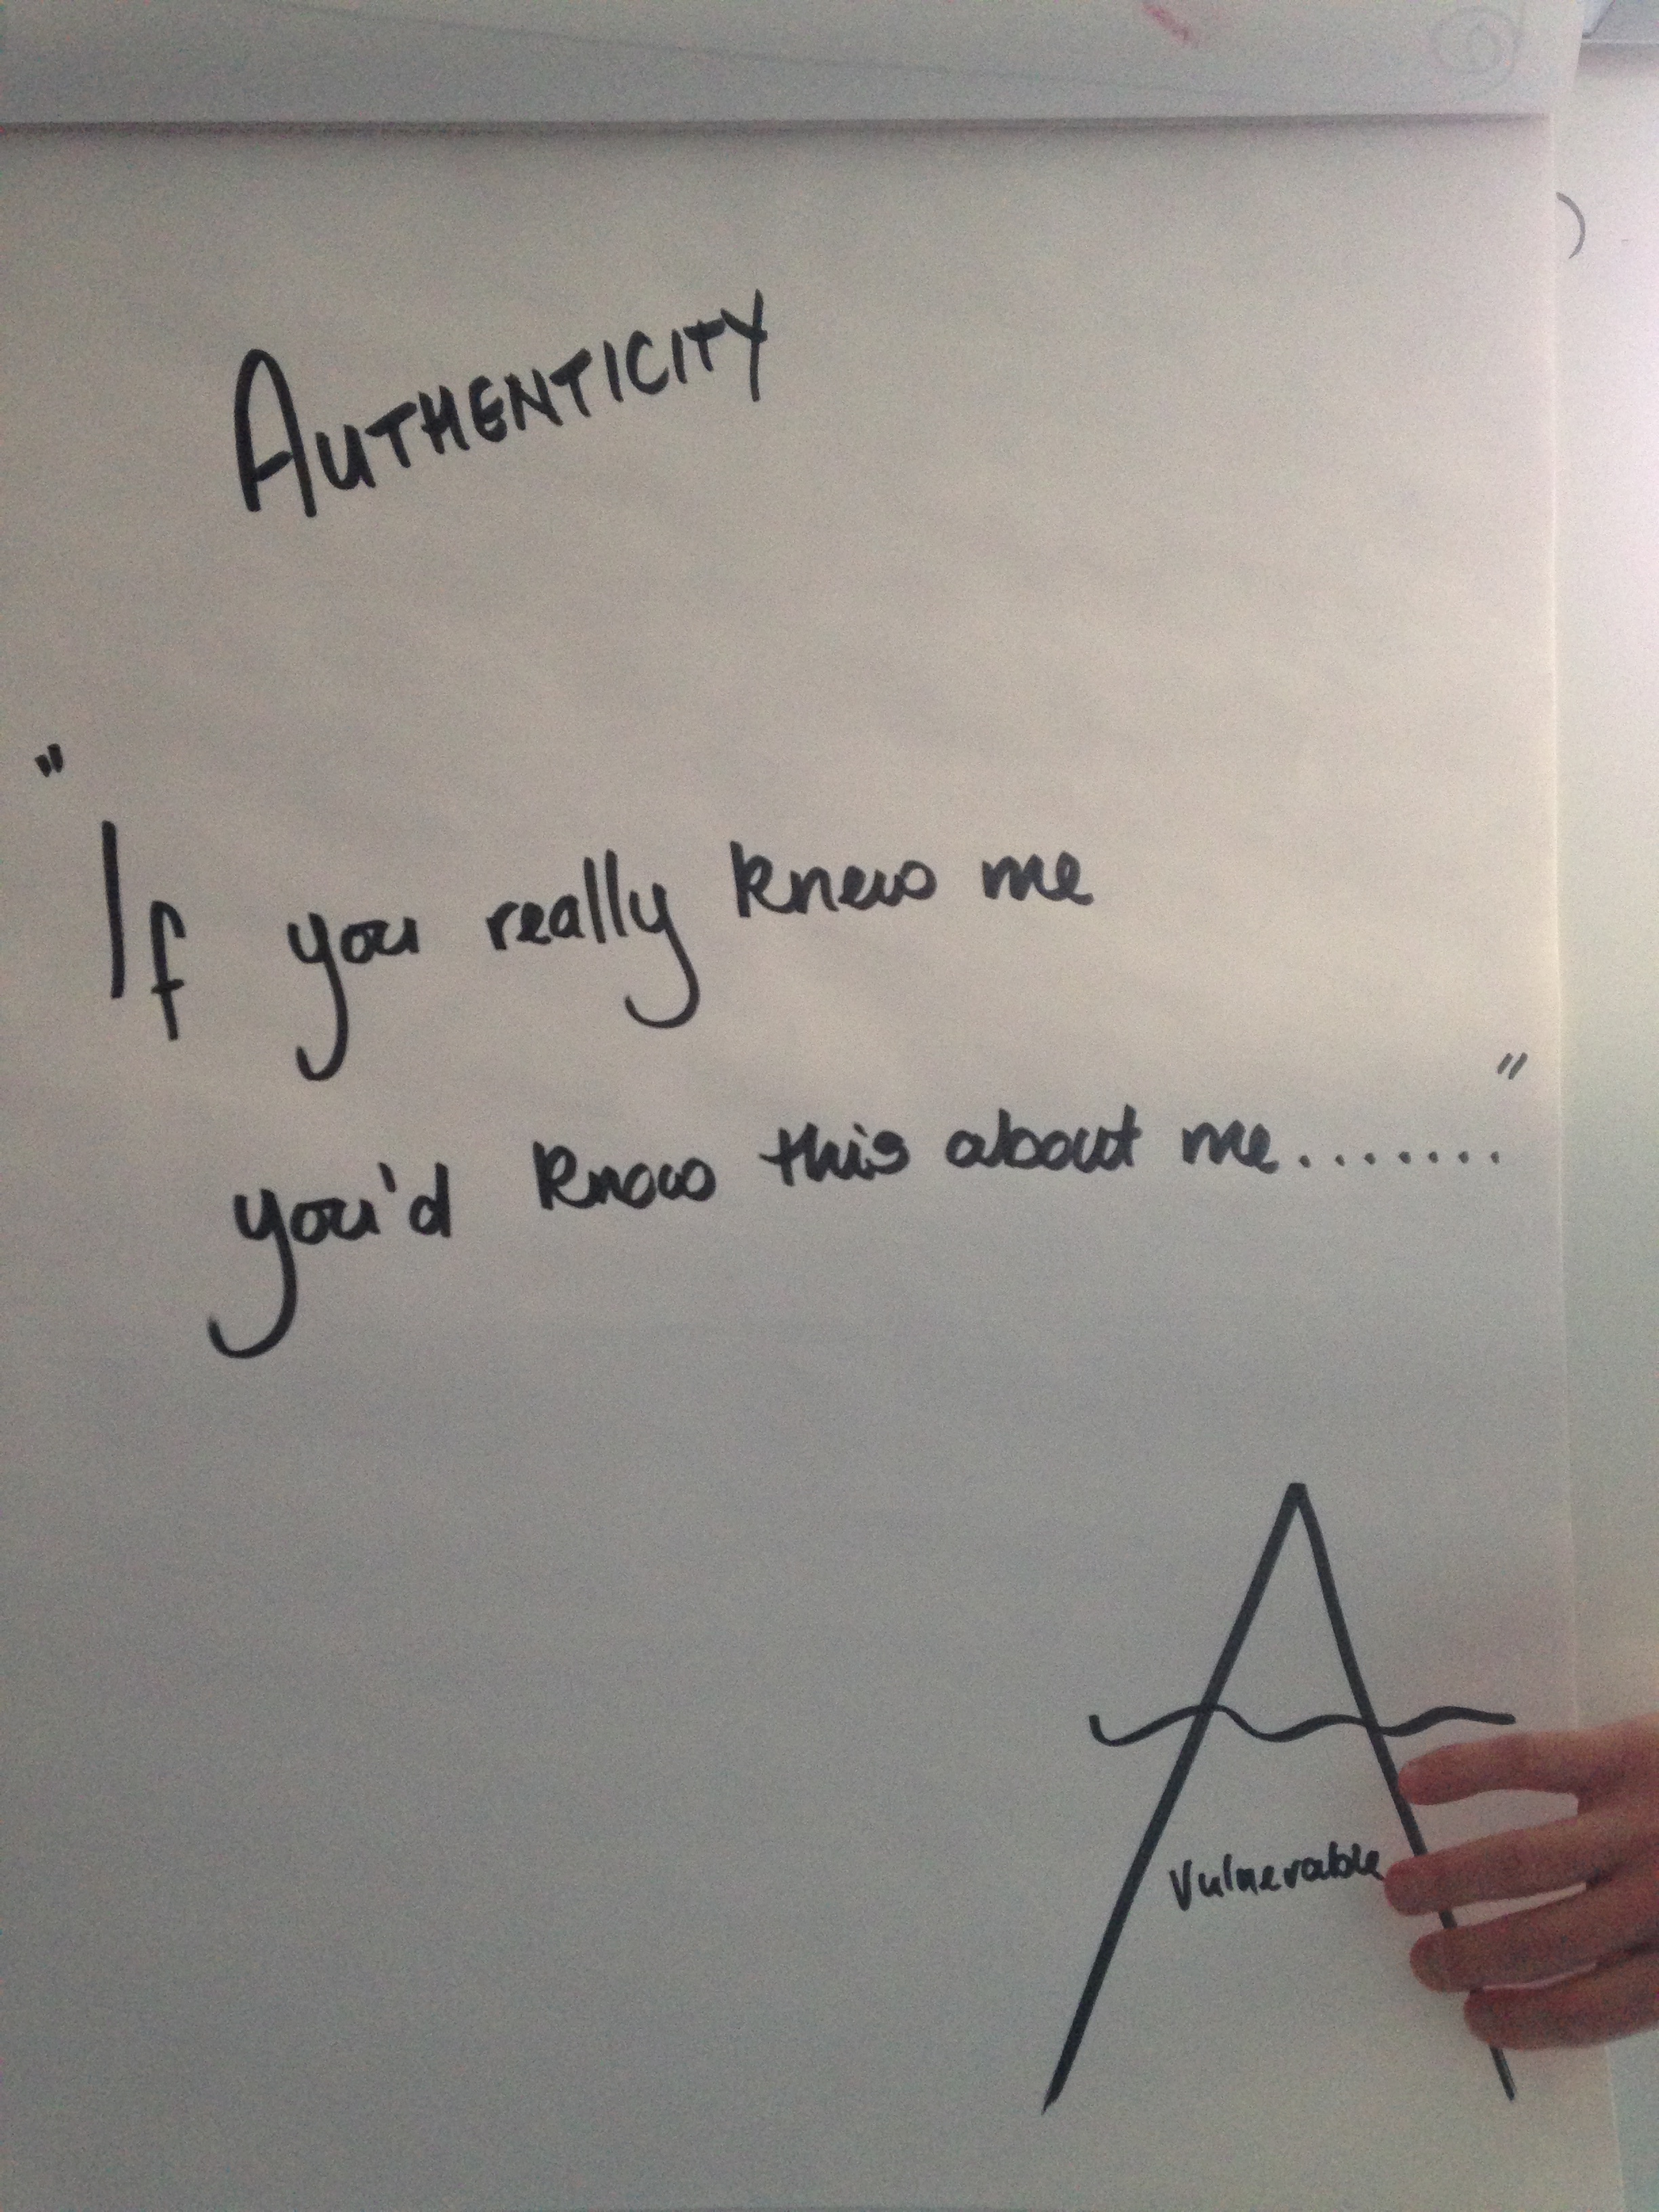 AUTHENTICITY
"If you really knew me
you'd know this about me........"
Vulnerable